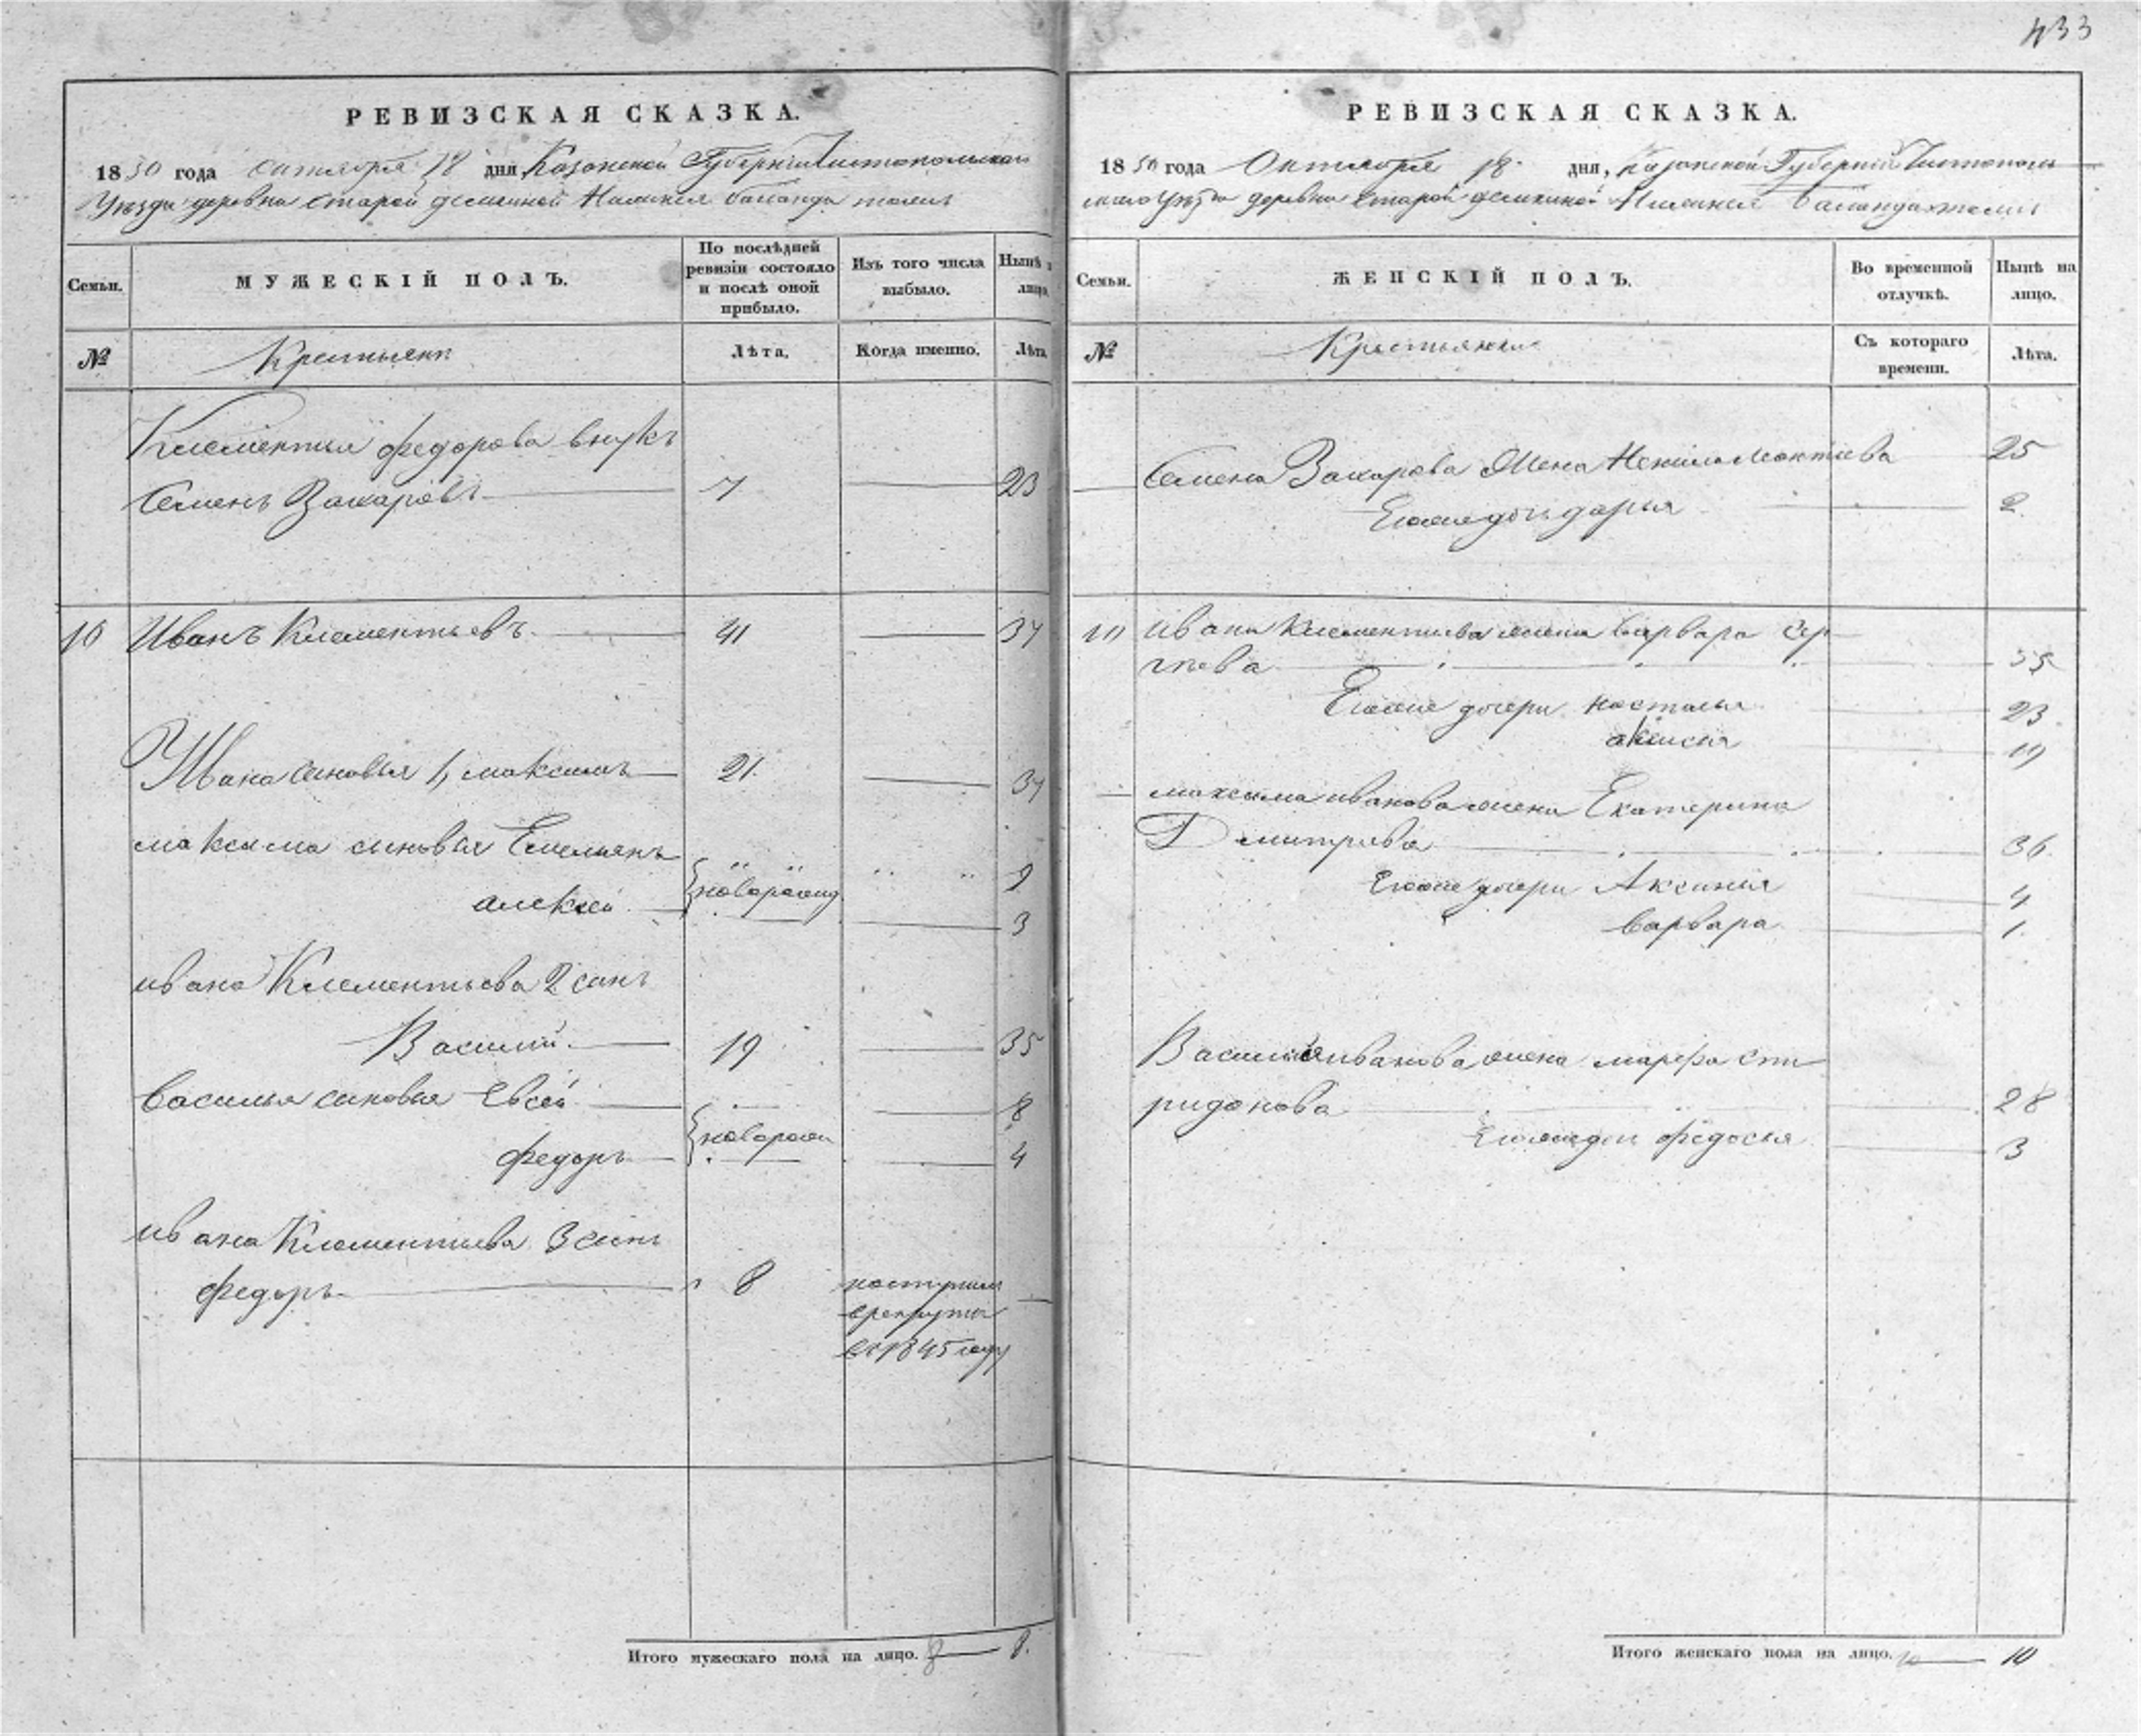 433
РЕВИЗСКАЯ СКАЗКА.
1850 года октября 18 дня Казанской Губернии Чистопольскаго
Уезда деревни Старой
Семьи.
МУЖЕСКІЙ ПОЛЪ.
По послѣдней ревизіи состояло и послѣ оной прибыло.
Изъ того числа выбыло.
Нынѣ
лицо.
№
Крестьяне
Лѣта.
Когда именно.
Лѣта.
Клементья федорова внукъ
Семенъ Захаровъ 7 23
10 Иванъ Клементьевъ 41
Ивана сыновья 1, максимъ 21 37
максима сыновья Емельянъ новорожд 9
алексей 3
ивана Клементьева 2 сынъ
Василий 19 35
василья сыновья Евсей новорож 8
федоръ 4
ивана Клементьева 3 сынъ
федоръ 8 поступил
врекруты
въ 1845 году
Итого мужескаго пола на лицо. 8 8.
РЕВИЗСКАЯ СКАЗКА.
1850 года Октября 18 дня, Казанской Губернии Чистополь
скаго Уезда деревни Старой
Семьи.
ЖЕНСКІЙ ПОЛЪ.
Во временной отлучкѣ.
Нынѣ на лицо.
№
Крестьянки
Съ котораго времени.
Лѣта.
Семена Захарова жена 25
Егоже дочь дарья 2
10 ивана Клементьева жена варвара Сер
геева 55
Егоже дочери насталья 23
19
максима иванова жена Екатерина
Дмитрева 36
Егоже дочери Аксинья 4
варвара 1
Василья иванова жена марфа спи
ридонова 28
Егоже дочь федосья 3
Итого женскаго пола на лицо. 10 10